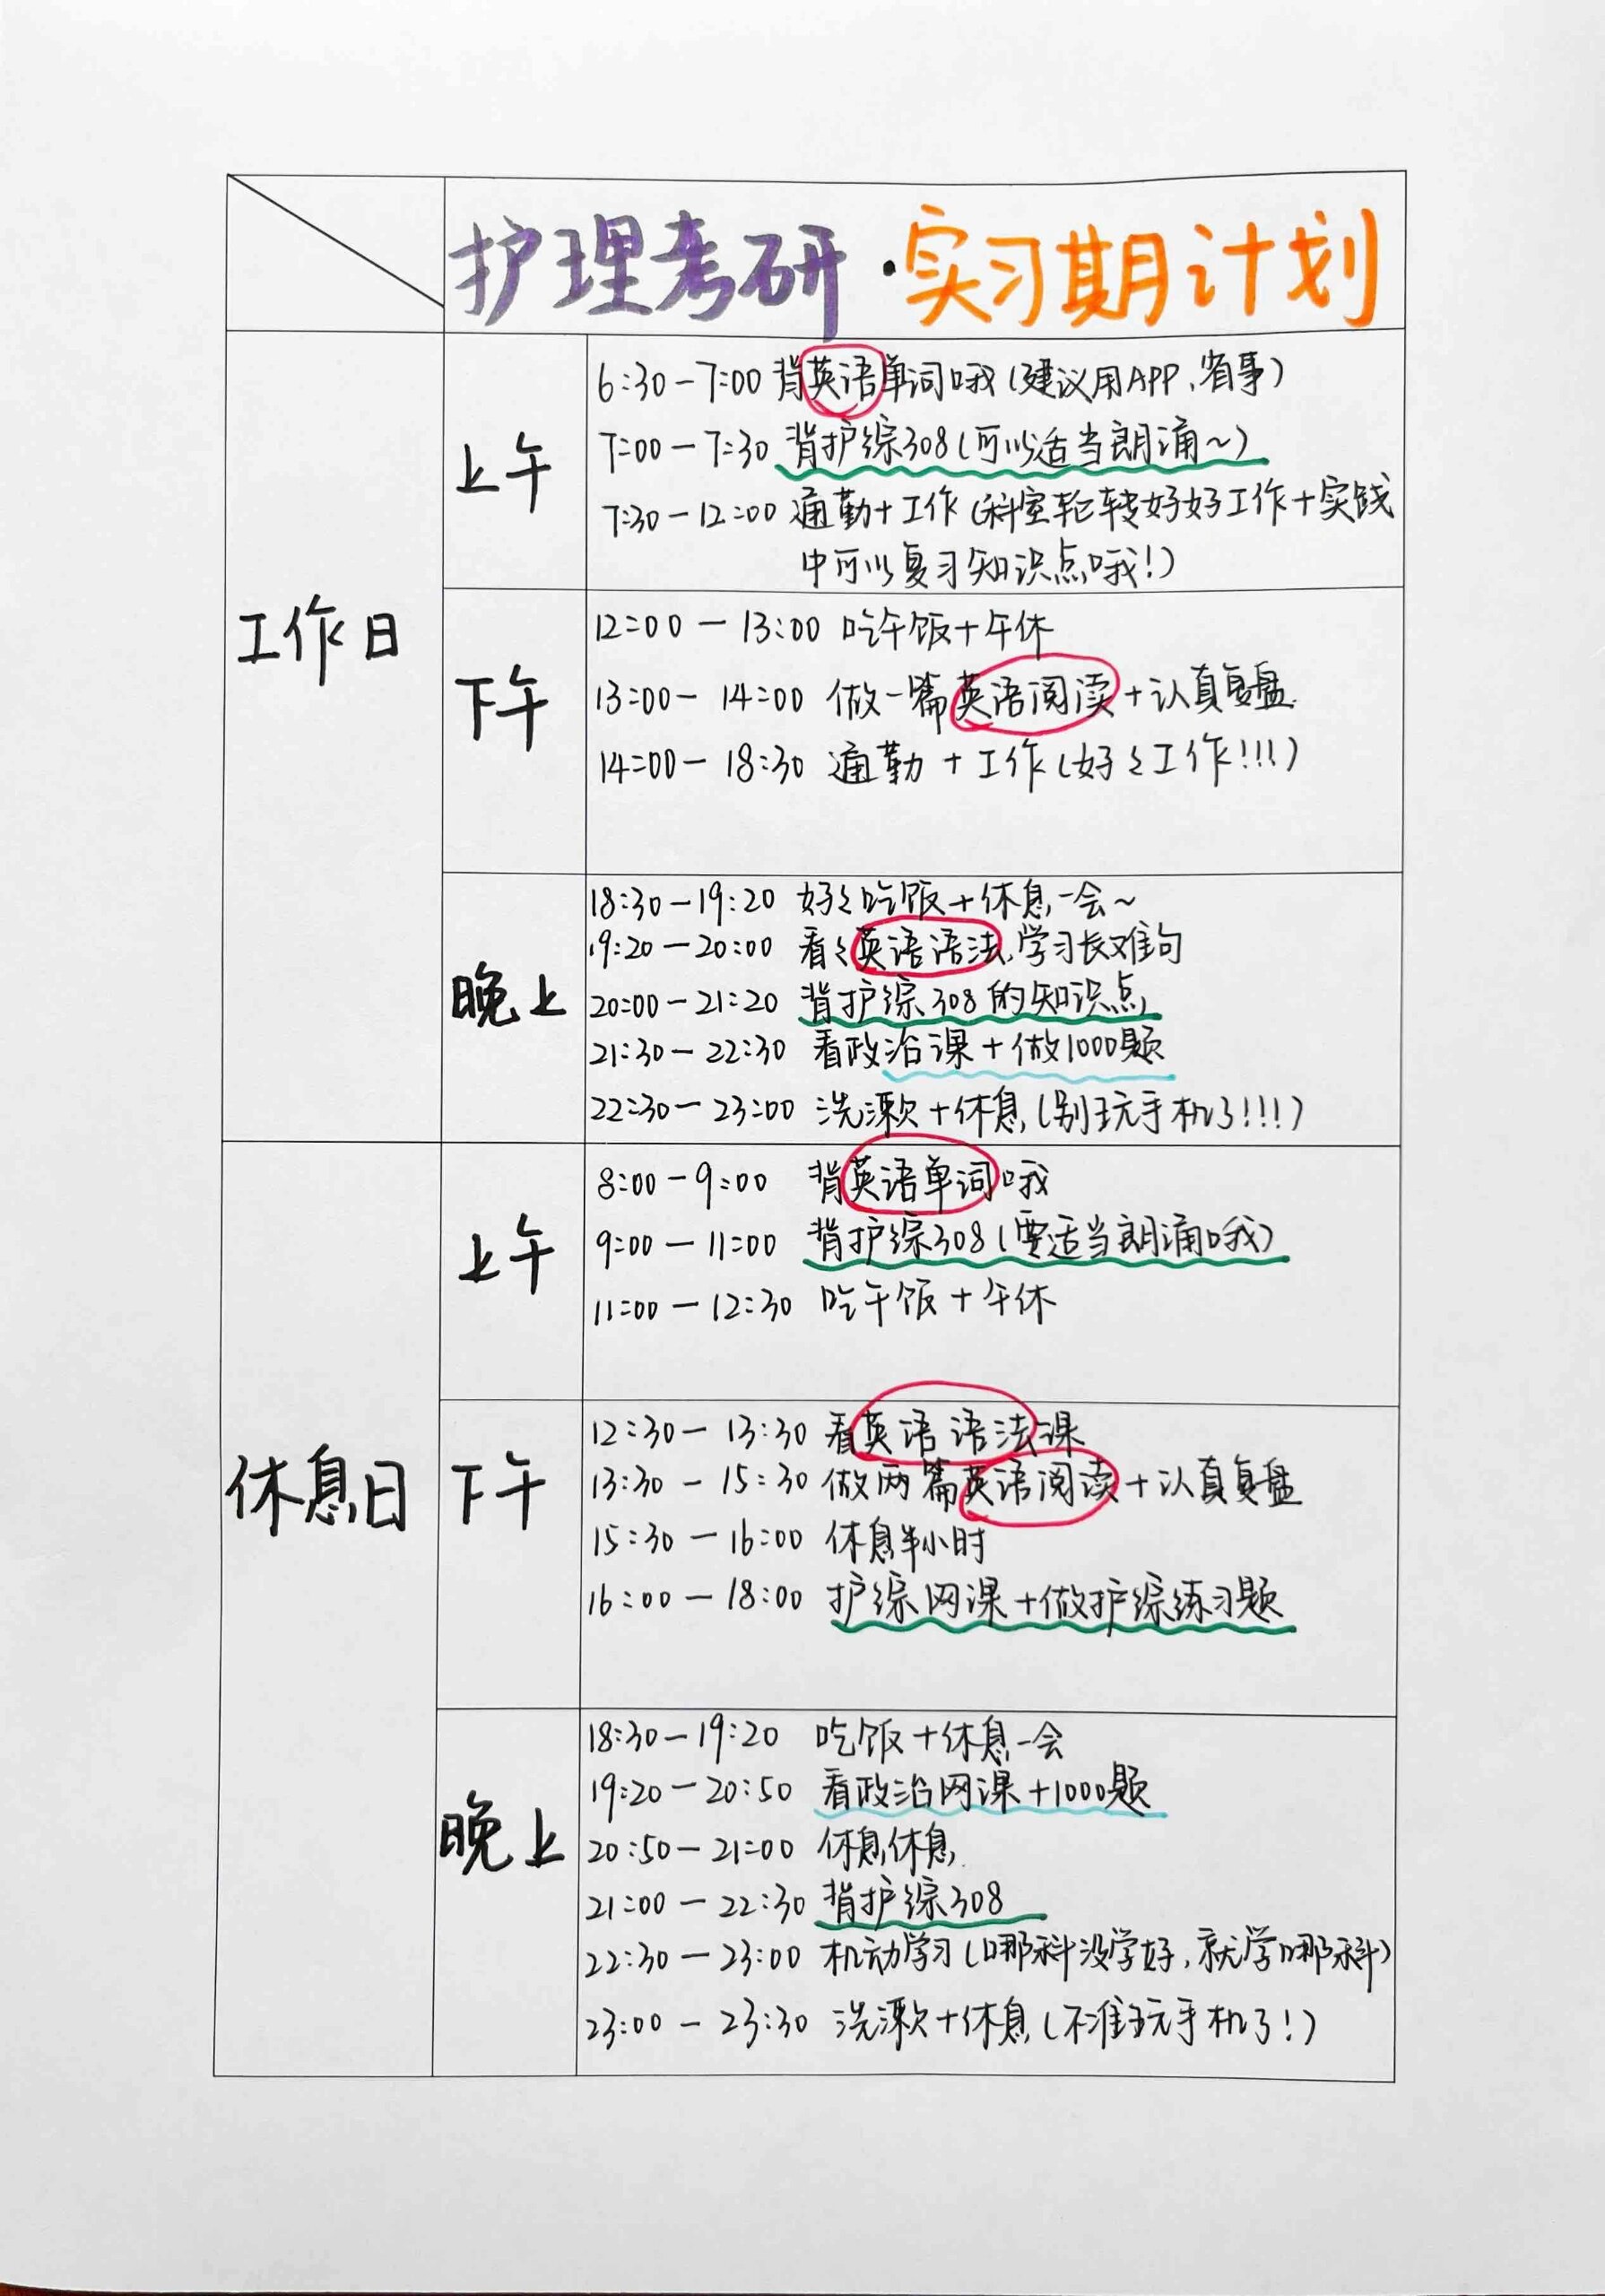 护理考研·实习期计划
工作日
上午
6:30-7:00 背英语单词哦(建议用APP,省事)
7:00-7:30 背护综308(可以适当朗诵~)
7:30-12:00 通勤+工作(科室轮转好好工作+实践
中可以复习知识点哦!)
下午
12:00-13:00 吃午饭+午休
13:00-14:00 做一篇英语阅读+认真复盘.
14:00-18:30 通勤+工作(好々工作!!!)
晚上
18:30-19:20 好々吃饭+休息一会~
19:20-20:00 看々英语语法,学习长难句
20:00-21:20 背护综308的知识点
21:30-22:30 看政治课+做1000题
22:30-23:00 洗漱+休息(别玩手机了!!!)
休息日
上午
8:00-9:00 背英语单词哦
9:00-11:00 背护综308(要适当朗诵哦)
11:00-12:30 吃午饭+午休
下午
12:30-13:30 看英语语法课
13:30-15:30 做两篇英语阅读+认真复盘
15:30-16:00 休息半小时
16:00-18:00 护综网课+做护综练习题
晚上
18:30-19:20 吃饭+休息一会
19:20-20:50 看政治网课+1000题
20:50-21:00 休息休息.
21:00-22:30 背护综308
22:30-23:00 机动学习(哪科没学好,就学哪科)
23:00-23:30 洗漱+休息(不准玩手机了!)